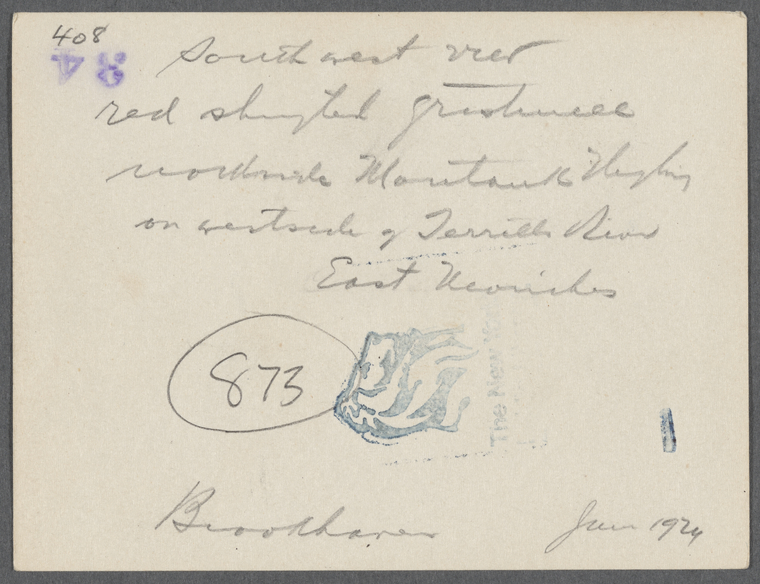 408
34
Southwest view
red shingled gristmill
northside Montauk Highway
on westside of Terrells River
East Moriches
873
The New
Brookhaven
June 1924